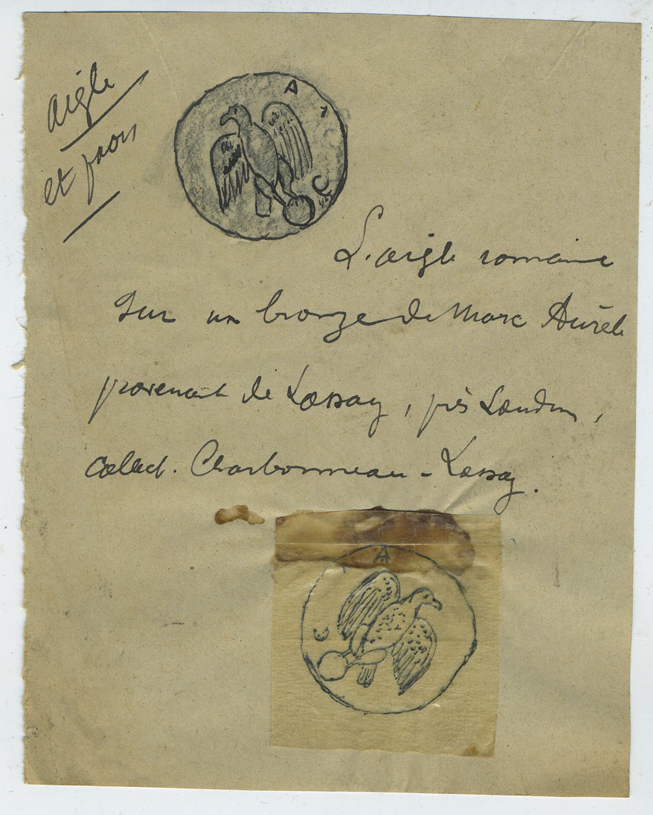 Aigle
et paon
A
C
L'aigle romaine
sur un bronze de Marc Aurèle
provenant de Lassay, près Loudun,
collect. Charbonneau-Lassay.
A
C